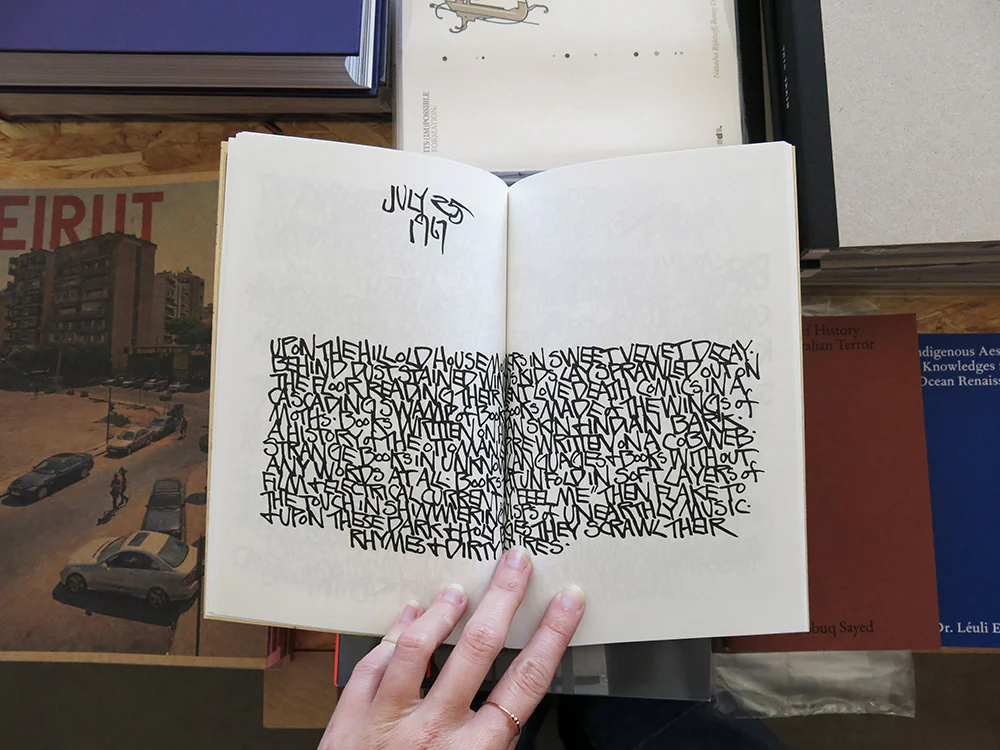 EIRUT
Natasha
ITS (IM)POSSIBLE
FORMATION:
JULY 25
1967
UPON THE HILL OLD HOUSE IN SWEET VELVET DECAY.
BEHIND DUST STAINED BOYS LAY SPRAWLED OUT ON
THE FLOOR READING THEIR DEATH COMICS IN A
CASCADING SWAMP of BOOKS. BOOKS MADE of THE WINGS of
MOTHS. BOOKS WRITTEN ON SKIN of INDIAN BARDS.
A HISTORY of THE OTTOMAN WRITTEN ON A COBWEB.
STRANGE BOOKS IN UNKNOWN LANGUAGES + BOOKS WITHOUT
ANY WORDS AT ALL. BOOKS UNFOLD IN SOFT LAYERS of
FILM + ELECTRICAL CURRENT "FEEL ME" THEN FLAKE TO
THE TOUCH IN SHIMMERING + UNEARTHLY MUSIC.
+ UPON THESE DARK + HOLY THEY SCRAWL THEIR
RHYMES + DIRTY
of History
alian Terror
buq Sayed
ndigenous Aes
Knowledges
Ocean Renaiss
Dr. Léuli E